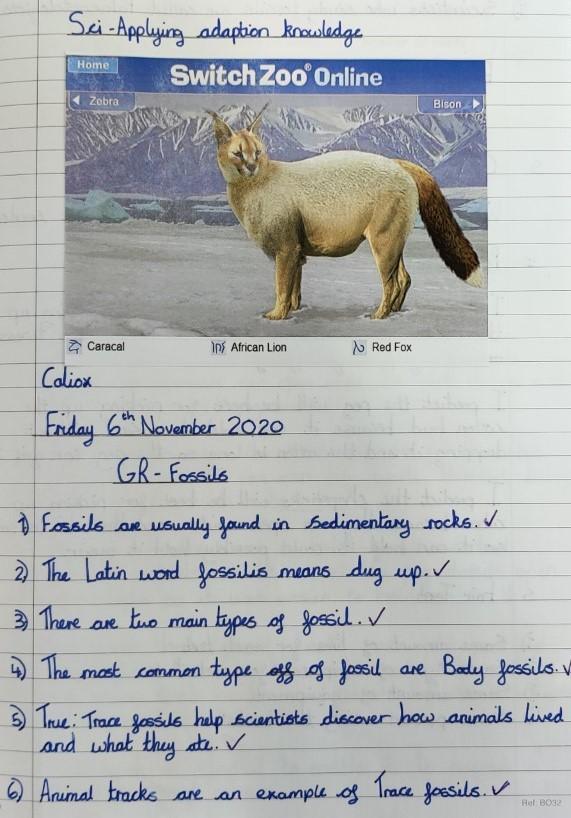 Sci-Applying adaption knowledge
Home
SwitchZoo® Online
Zebra
Bison
Caracal African Lion Red Fox
Caliox
Friday 6th November 2020
GR-Fossils
1) Fossils are usually found in sedimentary rocks. ✓
2) The Latin word fossilis means dug up. ✓
3) There are two main types of fossil. ✓
4) The most common type off of fossil are Body fossils. ✓
5) True: Trace fossils help scientists discover how animals lived
and what they ate. ✓
6) Animal tracks are an example of Trace fossils. ✓
Ref: BO32